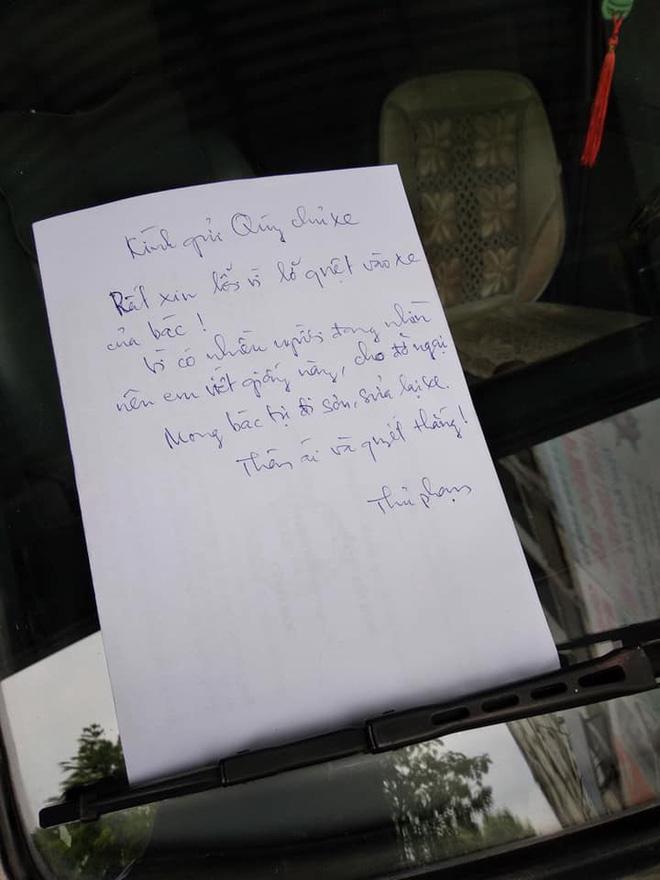 Kính gửi Qúy chủ xe
Rất xin lỗi vì lỡ quệt vào xe
của bác!
Vì có nhiều người đang nhìn
nên em viết giấy này, cho đỡ ngại
Mong bác tự đi sơn, sửa lại xe.
Thân ái và quyết thắng!
Thủ phạm